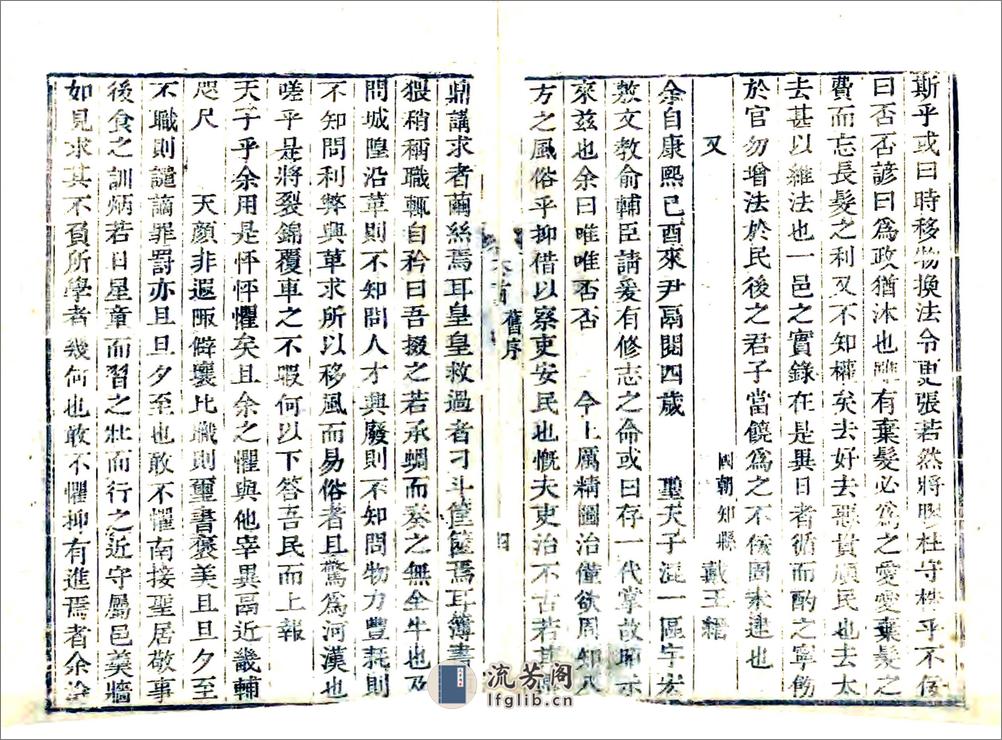 斯乎或曰時移物換法令更張若然將膠柱守株乎不佞
曰否否諺曰爲政猶沐也雖有棄髮必爲之愛愛棄髮之
費而忘長髮之利又不知權矣去好去惡貴順民也去太
去甚以維法也一邑之實錄在是異日者循而酌之寧傍
於官勿增法於民後之君子當饒爲之不佞固未逮也
又
國朝知縣 戴王縉
余自康熙己酉來尹鬲閱四歲 聖天子混一區宇宏
敷文教俞輔臣請爰有修志之命或曰存一代掌故昭示
來茲也余曰唯唯否否 今上厲精圖治僅欲周知八
方之風俗乎抑借以察吏安民也慨夫吏治不古若其
舊序
四
鼎講求者繭絲焉耳皇皇救過者刁斗筐篋焉耳簿書
猥稍稱職輒自矜曰吾掇之若承蜩而奏之無全牛也及
問城隍沿革則不知問人才興廢則不知問物力豐耗則
不知問利弊興革求所以移風而易俗者且驚爲河漢也
嗟乎是將裂錦覆車之不暇何以下答吾民而上報
天子乎余用是怦怦懼矣且余之懼與他宰異鬲近畿輔
咫尺 天顏非遐陬僻壤比職則璽書褒美且旦夕至
不職則譴謫罪罰亦且旦夕至也敢不懼南接聖居敬事
後食之訓炳若日星童而習之壯而行之近守屬邑羹牆
如見求其不負所學者幾何也敢不懼抑有進焉者余
流芳阁
lfglib.cn